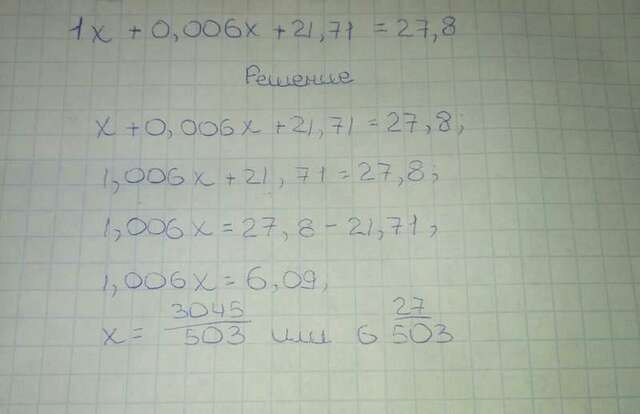 1x + 0,006x + 21,71 = 27,8
Решение
x + 0,006x + 21,71 = 27,8;
1,006x + 21,71 = 27,8;
1,006x = 27,8 - 21,71;
1,006x = 6,09;
x = 3045/503 или 6 27/503